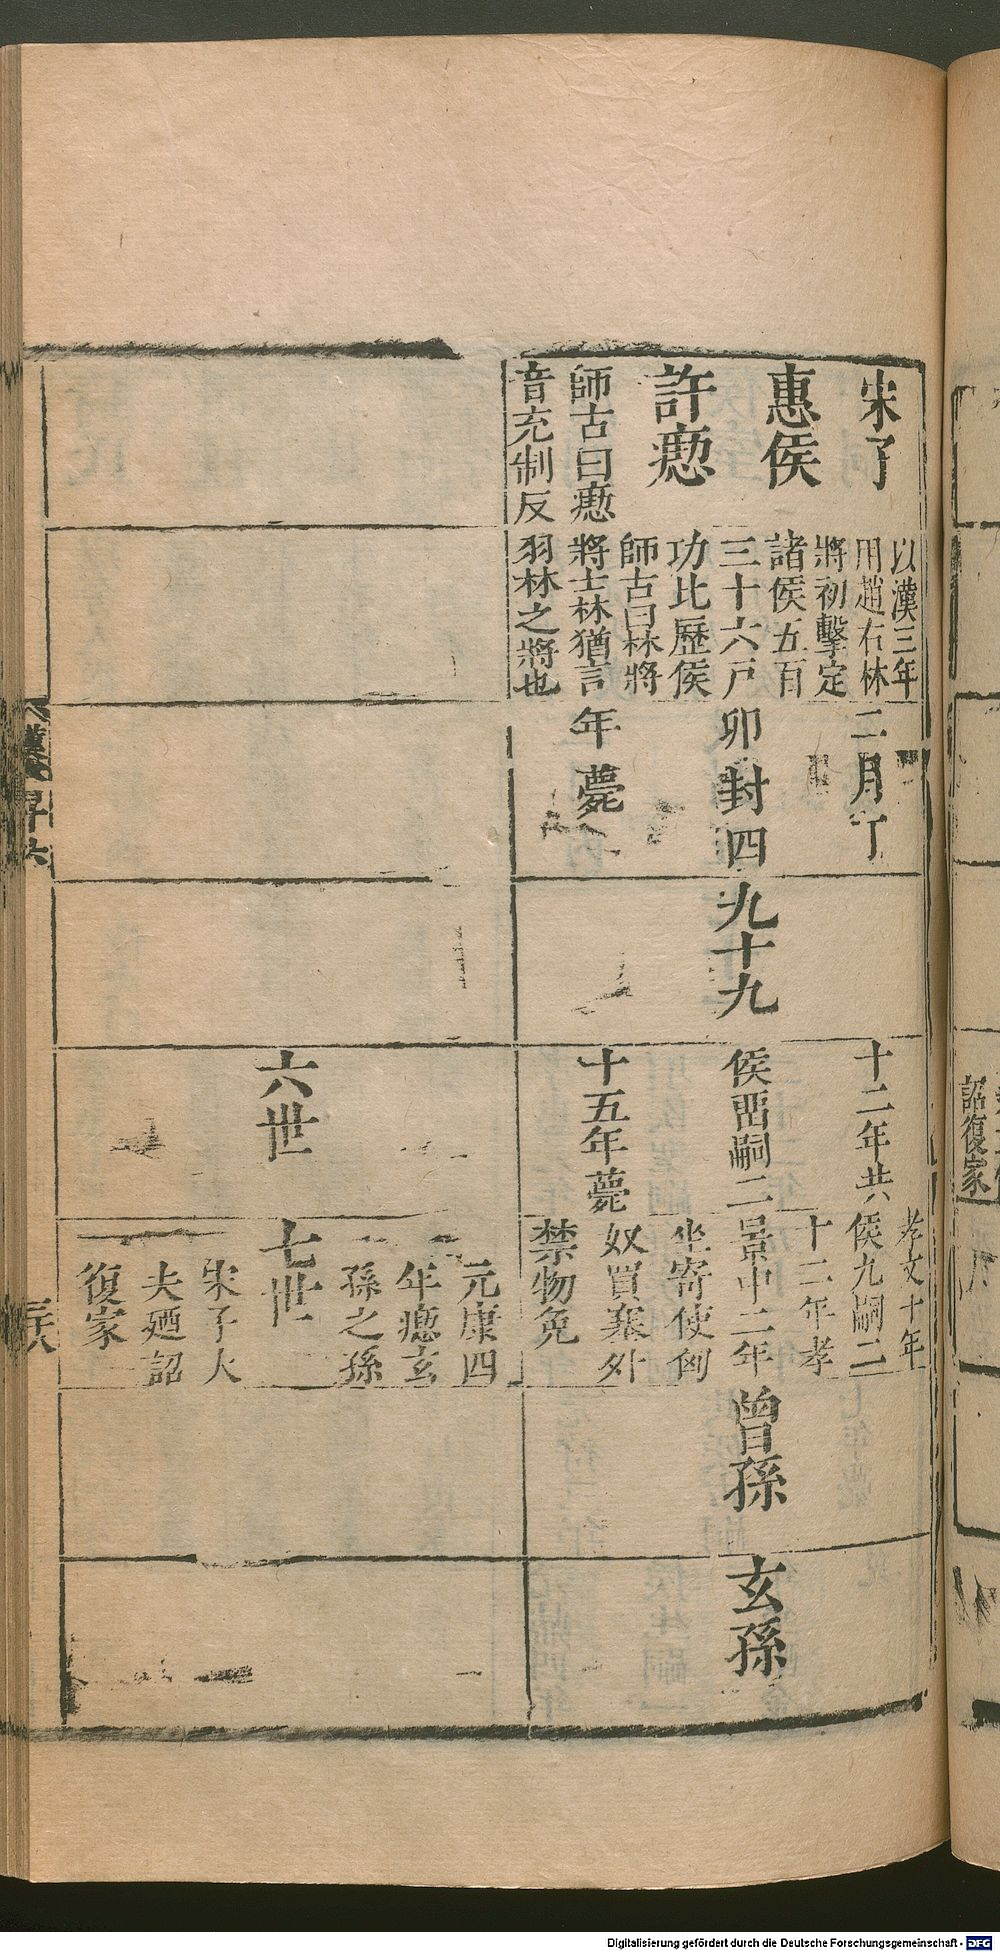 宋子
惠侯
許瘛
師古曰瘛
音充制反
以漢三年
用趙右林
將初擊定
諸侯五百
三十六戶
功比歷侯
師古曰林將
將士林猶言
羽林之將也
二月丁
卯封四
年薨
九十九
十二年共
侯畱嗣二
十五年薨
孝文十年
侯九嗣二
十二年孝
景中二年
坐寄使匈
奴買塞外
禁物免
曾孫
玄孫
六世
七世
元康四
年瘛玄
孫之孫
宋子大
夫廼詔
復家
詔復家
Digitalisierung gefördert durch die Deutsche Forschungsgemeinschaft - DFG